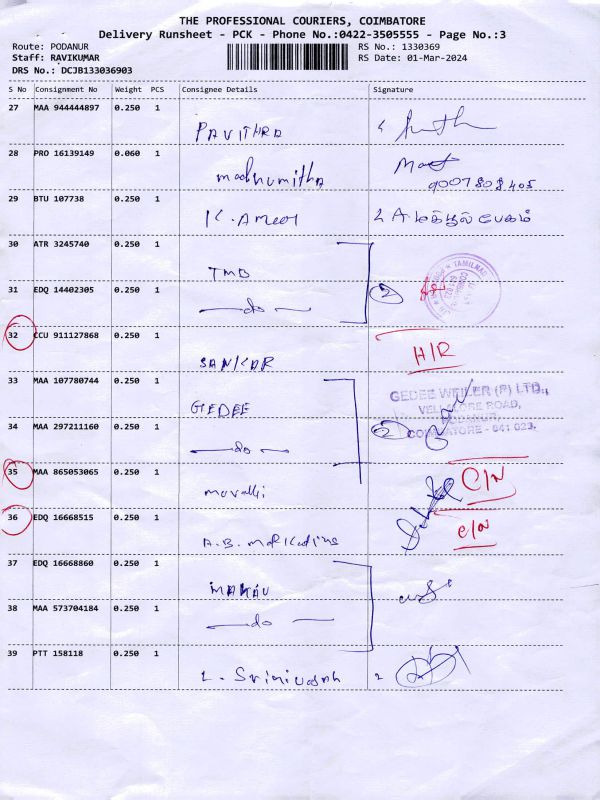 THE PROFESSIONAL COURIERS, COIMBATORE
Delivery Runsheet - PCK - Phone No.:0422-3505555 - Page No.:3
Route: PODANUR RS No.: 1330369
Staff: RAVIKUMAR RS Date: 01-Mar-2024
DRS No.: DCJB133036903
S No Consignment No Weight PCS Consignee Details Signature
27 MAA 944444897 0.250 1
PAVITHRA
28 PRO 16139149 0.060 1
madhumitha
9007808405
29 BTU 107738 0.250 1
K. Ameer
30 ATR 3245740 0.250 1
TMB
31 EDQ 14402305 0.250 1
do 2
32 CCU 911127868 0.250 1
H/R
SANKAR
33 MAA 107780744 0.250 1
GEDEE WEILER (P) LTD.,
VELLALORE ROAD,
PODANUR,
COIMBATORE - 641 023.
GEDEE
34 MAA 297211160 0.250 1
do 2
35 MAA 865053065 0.250 1
C/N
36 EDQ 16668515 0.250 1
C/N
A.B.
37 EDQ 16668860 0.250 1
38 MAA 573704184 0.250 1
do
39 PTT 158118 0.250 1
L. Srinivasan